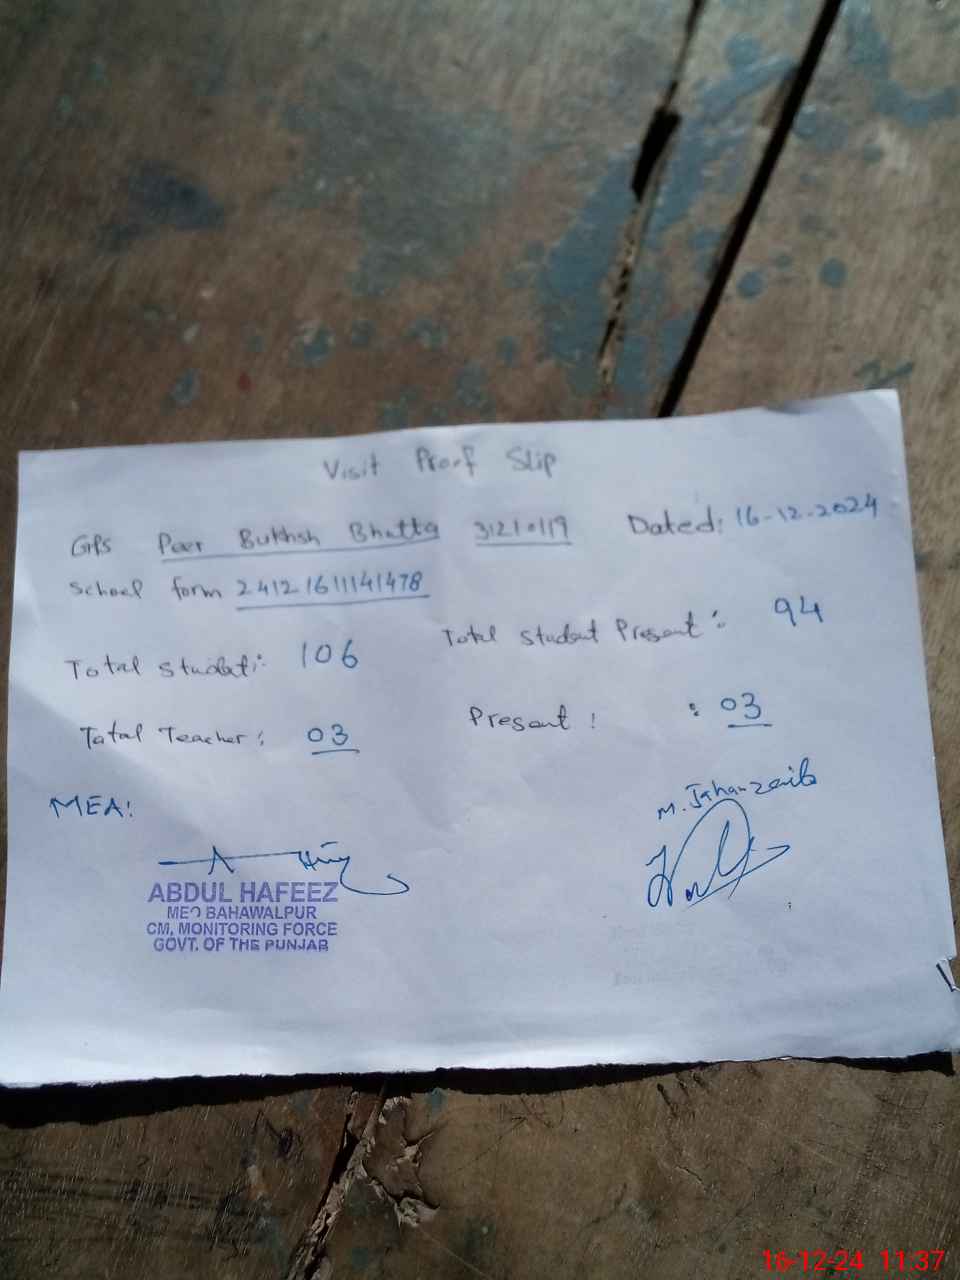 Visit Proof Slip
GPS Peer Bukhsh Bhatta 31210119 Dated: 16-12-2024
School form 2412 1611141478
Total Student: 106 Total Student Present: 94
Total Teacher: 03 Present: : 03
MEA:
M. Jahanzaib
ABDUL HAFEEZ
MEO BAHAWALPUR
CM, MONITORING FORCE
GOVT. OF THE PUNJAB
16-12-24 11:37